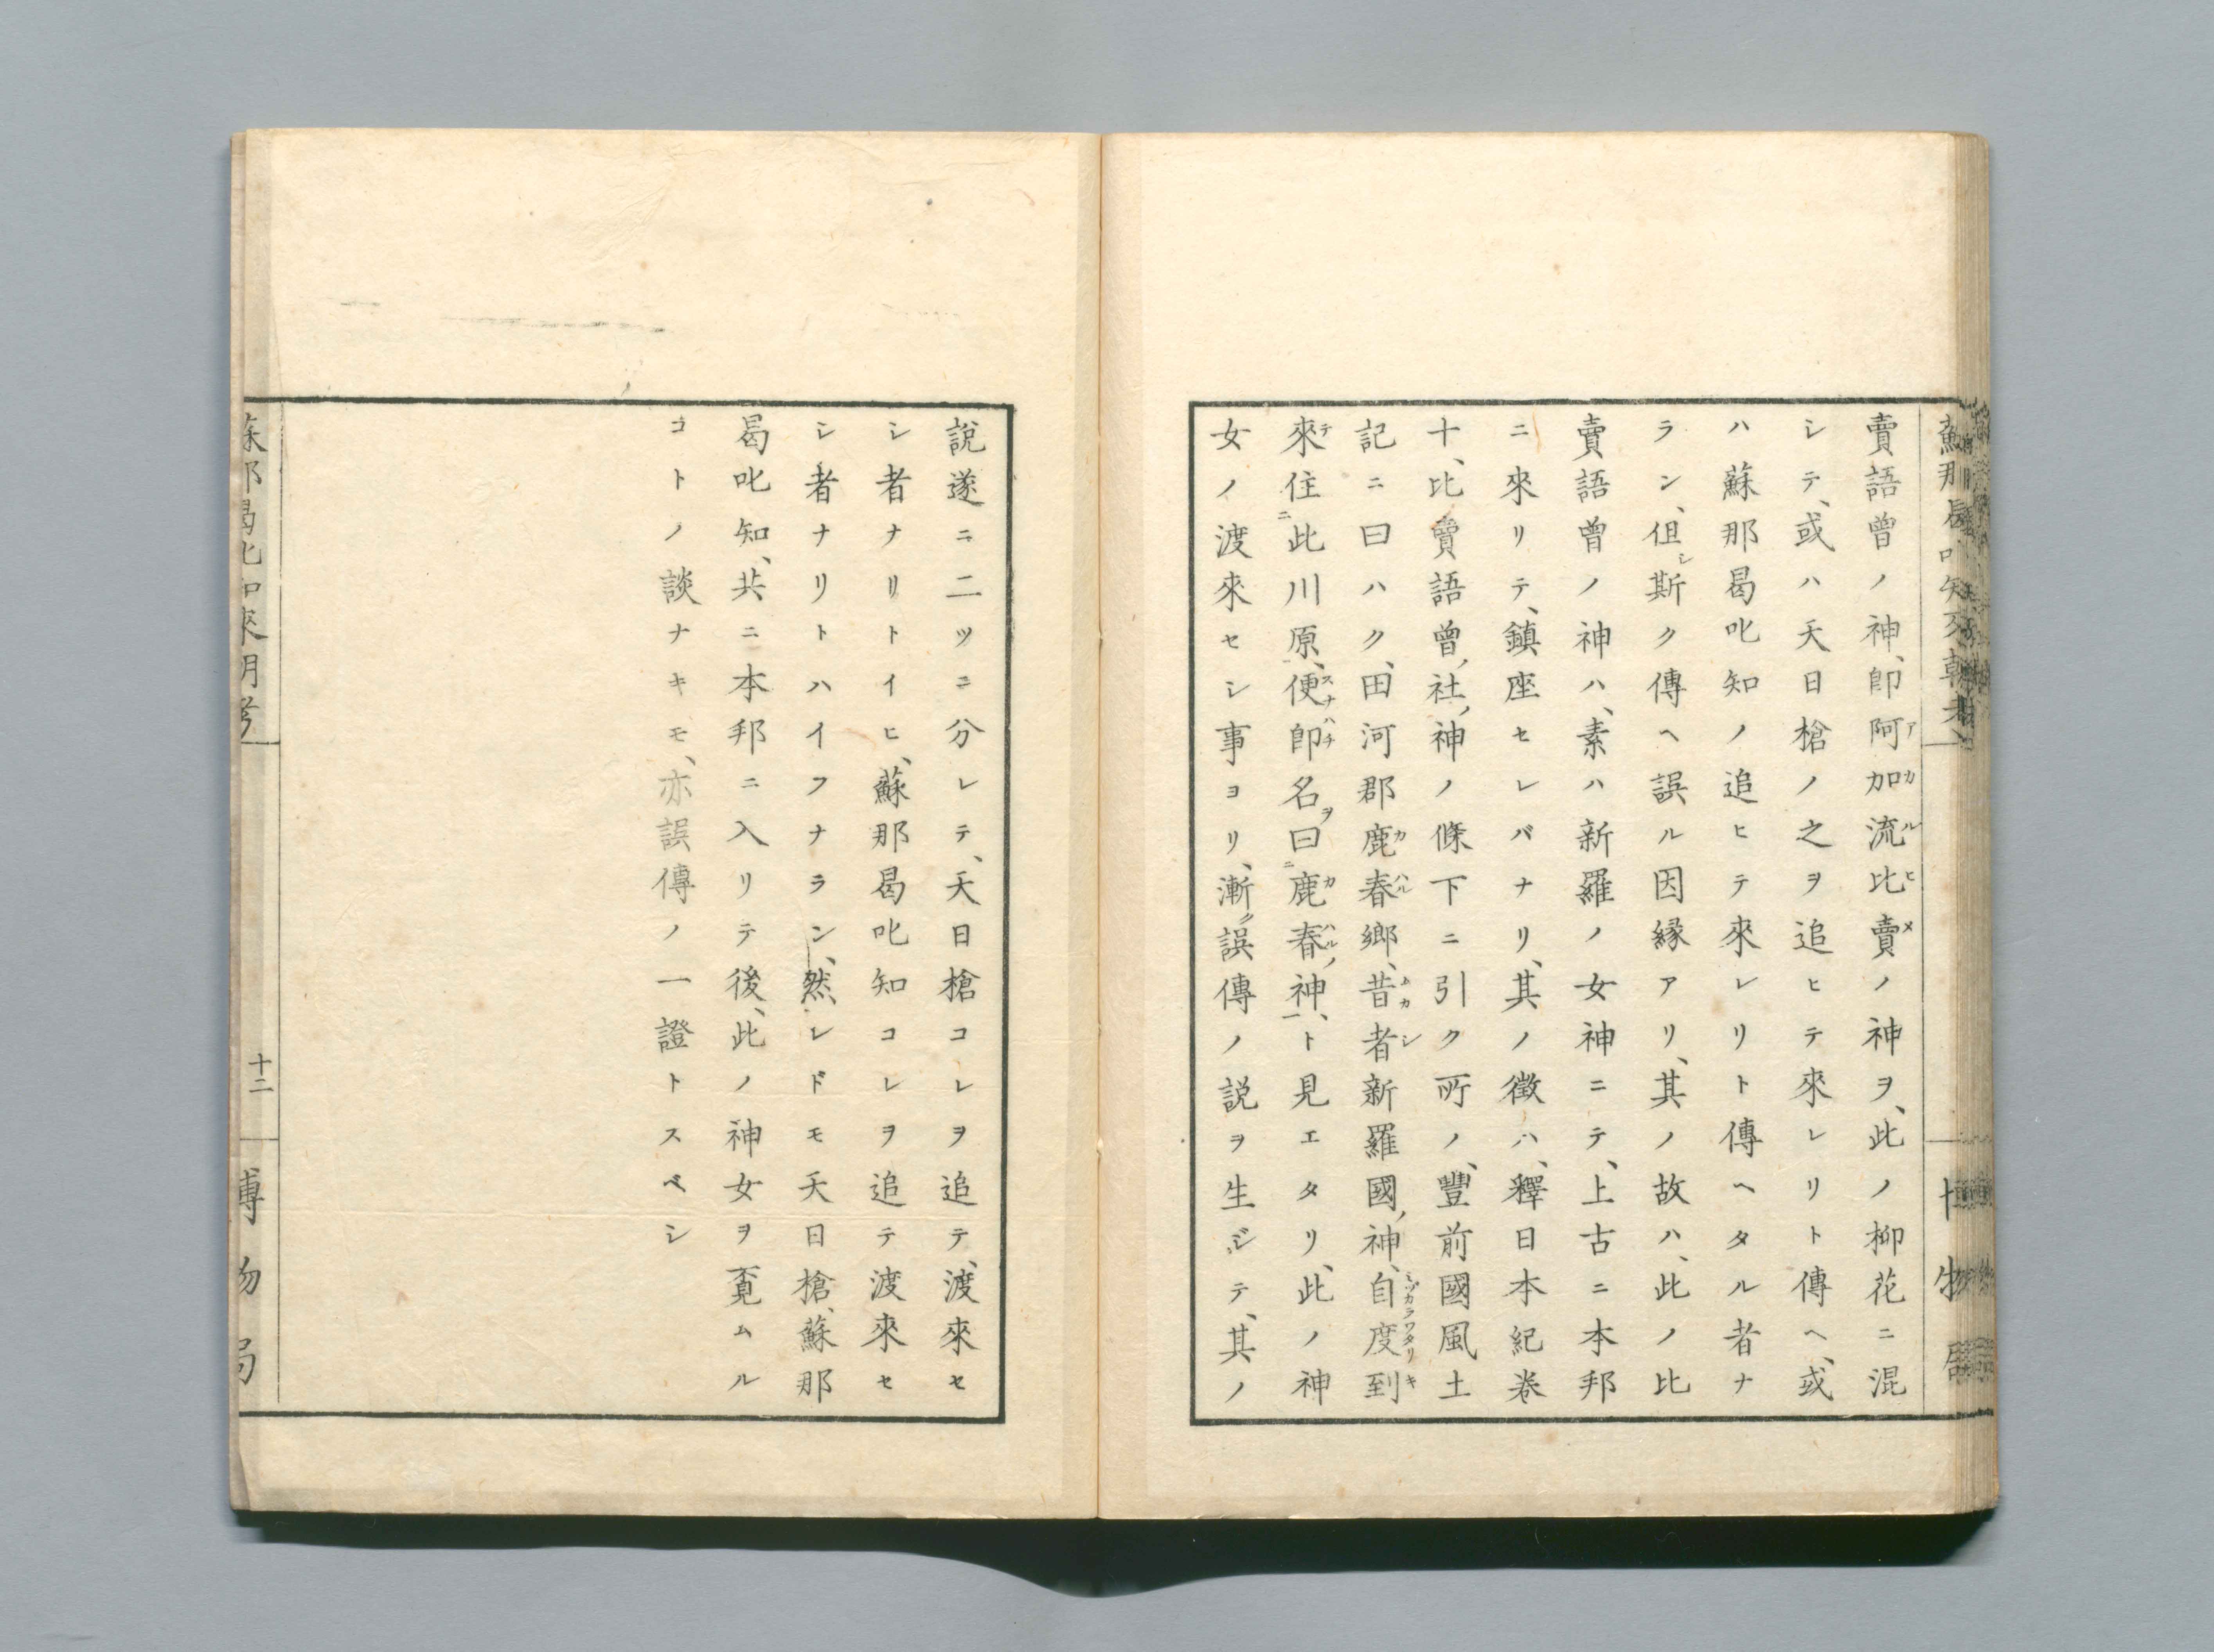 賣語曾ノ神、卽阿加流比賣ノ神ヲ、此ノ柳花ニ混
シテ、或ハ天日槍ノ之ヲ追ヒテ來レリト傳ヘ、或
ハ蘇那曷叱知ノ追ヒテ來レリト傳ヘタル者ナ
ラン、但シ斯ク傳ヘ誤ル因縁アリ、其ノ故ハ、此ノ比
賣語曾ノ神ハ、素ハ新羅ノ女神ニテ、上古ニ本邦
ニ來リテ、鎮座セレバナリ、其ノ徵ハ、釋日本紀卷
十、比賣語曾ノ社ノ神ノ條下ニ引ク所ノ、豐前國風土
記ニ曰ハク、田河郡鹿春鄉、昔者新羅國ノ神、自度到
來テ住ニ此川原、便卽名ヲ曰ニ鹿春ノ神一、ト見エタリ、此ノ神
女ノ渡來セシ事ヨリ、漸ク誤傳ノ説ヲ生ジテ、其ノ
説遂ニ二ツニ分レテ、天日槍コレヲ追テ、渡來セ
シ者ナリトイヒ、蘇那曷叱知コレヲ追テ渡來セ
シ者ナリトハイフナラン、然レドモ天日槍、蘇那
曷叱知、共ニ本邦ニ入リテ後、此ノ神女ヲ覔ムル
コトノ談ナキモ、亦誤傳ノ一證トスベシ
十二
博物局